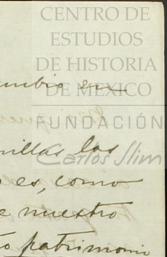 CENTRO DE
ESTUDIOS
DE HISTORIA
DE MÉXICO
FUNDACIÓN
Carlos Slim
en
las
es, como
nuestro
patrimonio